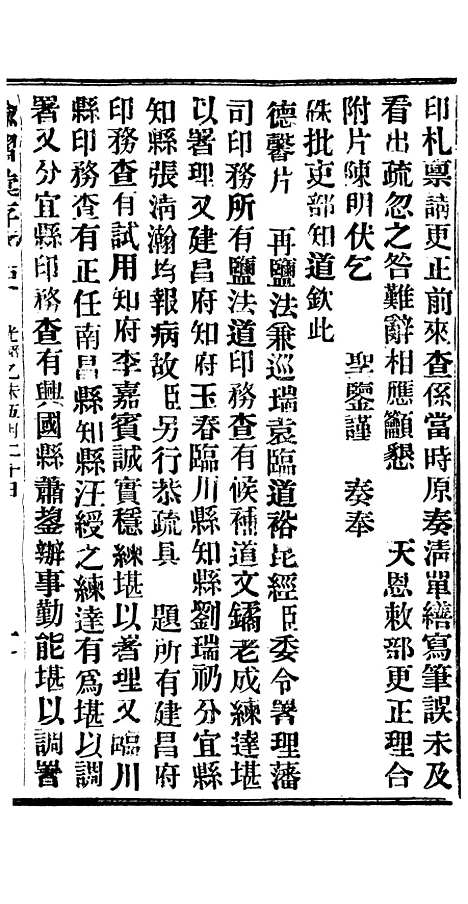 印札稟請更正前來查係當時原奏淸單繕寫筆誤未及
看出疏忽之咎難辭相應籲懇　天恩敕部更正理合
附片陳明伏乞　聖鑒謹　奏奉
硃批吏部知道欽此
德馨片　再鹽法兼巡瑞袁臨道裕昆經臣委令署理藩
司印務所有鹽法道印務查有候補道文鐍老成練達堪
以署理又建昌府知府玉春臨川縣知縣劉瑞礽分宜縣
知縣張淸瀚均報病故臣另行恭疏具　題所有建昌府
印務查有試用知府李嘉賓誠實穩練堪以署理又臨川
縣印務查有正任南昌縣知縣汪綬之練達有爲堪以調
署又分宜縣印務查有興國縣蕭鋆辦事勤能堪以調署
諭摺彙存 光緒乙未五月二十日